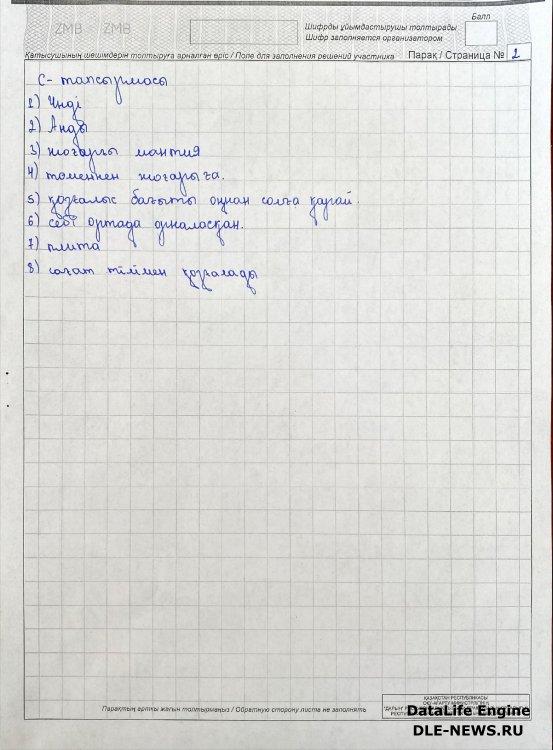 ZMB ZMB
Балл
Шифрды ұйымдастырушы толтырады
Шифр заполняется организатором
Қатысушының шешімдерін толтыруға арналған өріс / Поле для заполнения решений участника Парақ / Страница № 2
С- тапсырмасы
1) Үнді
2) Анды
3) жоғарғы мантия
4) төменнен жоғарыға.
5) қозғалыс бағыты оңнан солға қарай.
6) себі ортада орналасқан.
7) плита
8) сағат тілімен қозғалады
Парақтың артқы жағын толтырмаңыз / Обратную сторону листа не заполнять
ҚАЗАҚСТАН РЕСПУБЛИКАСЫ
ОҚУ-АҒАРТУ МИНИСТРЛІГІНІҢ
DataLife Engine
DLE-NEWS.RU